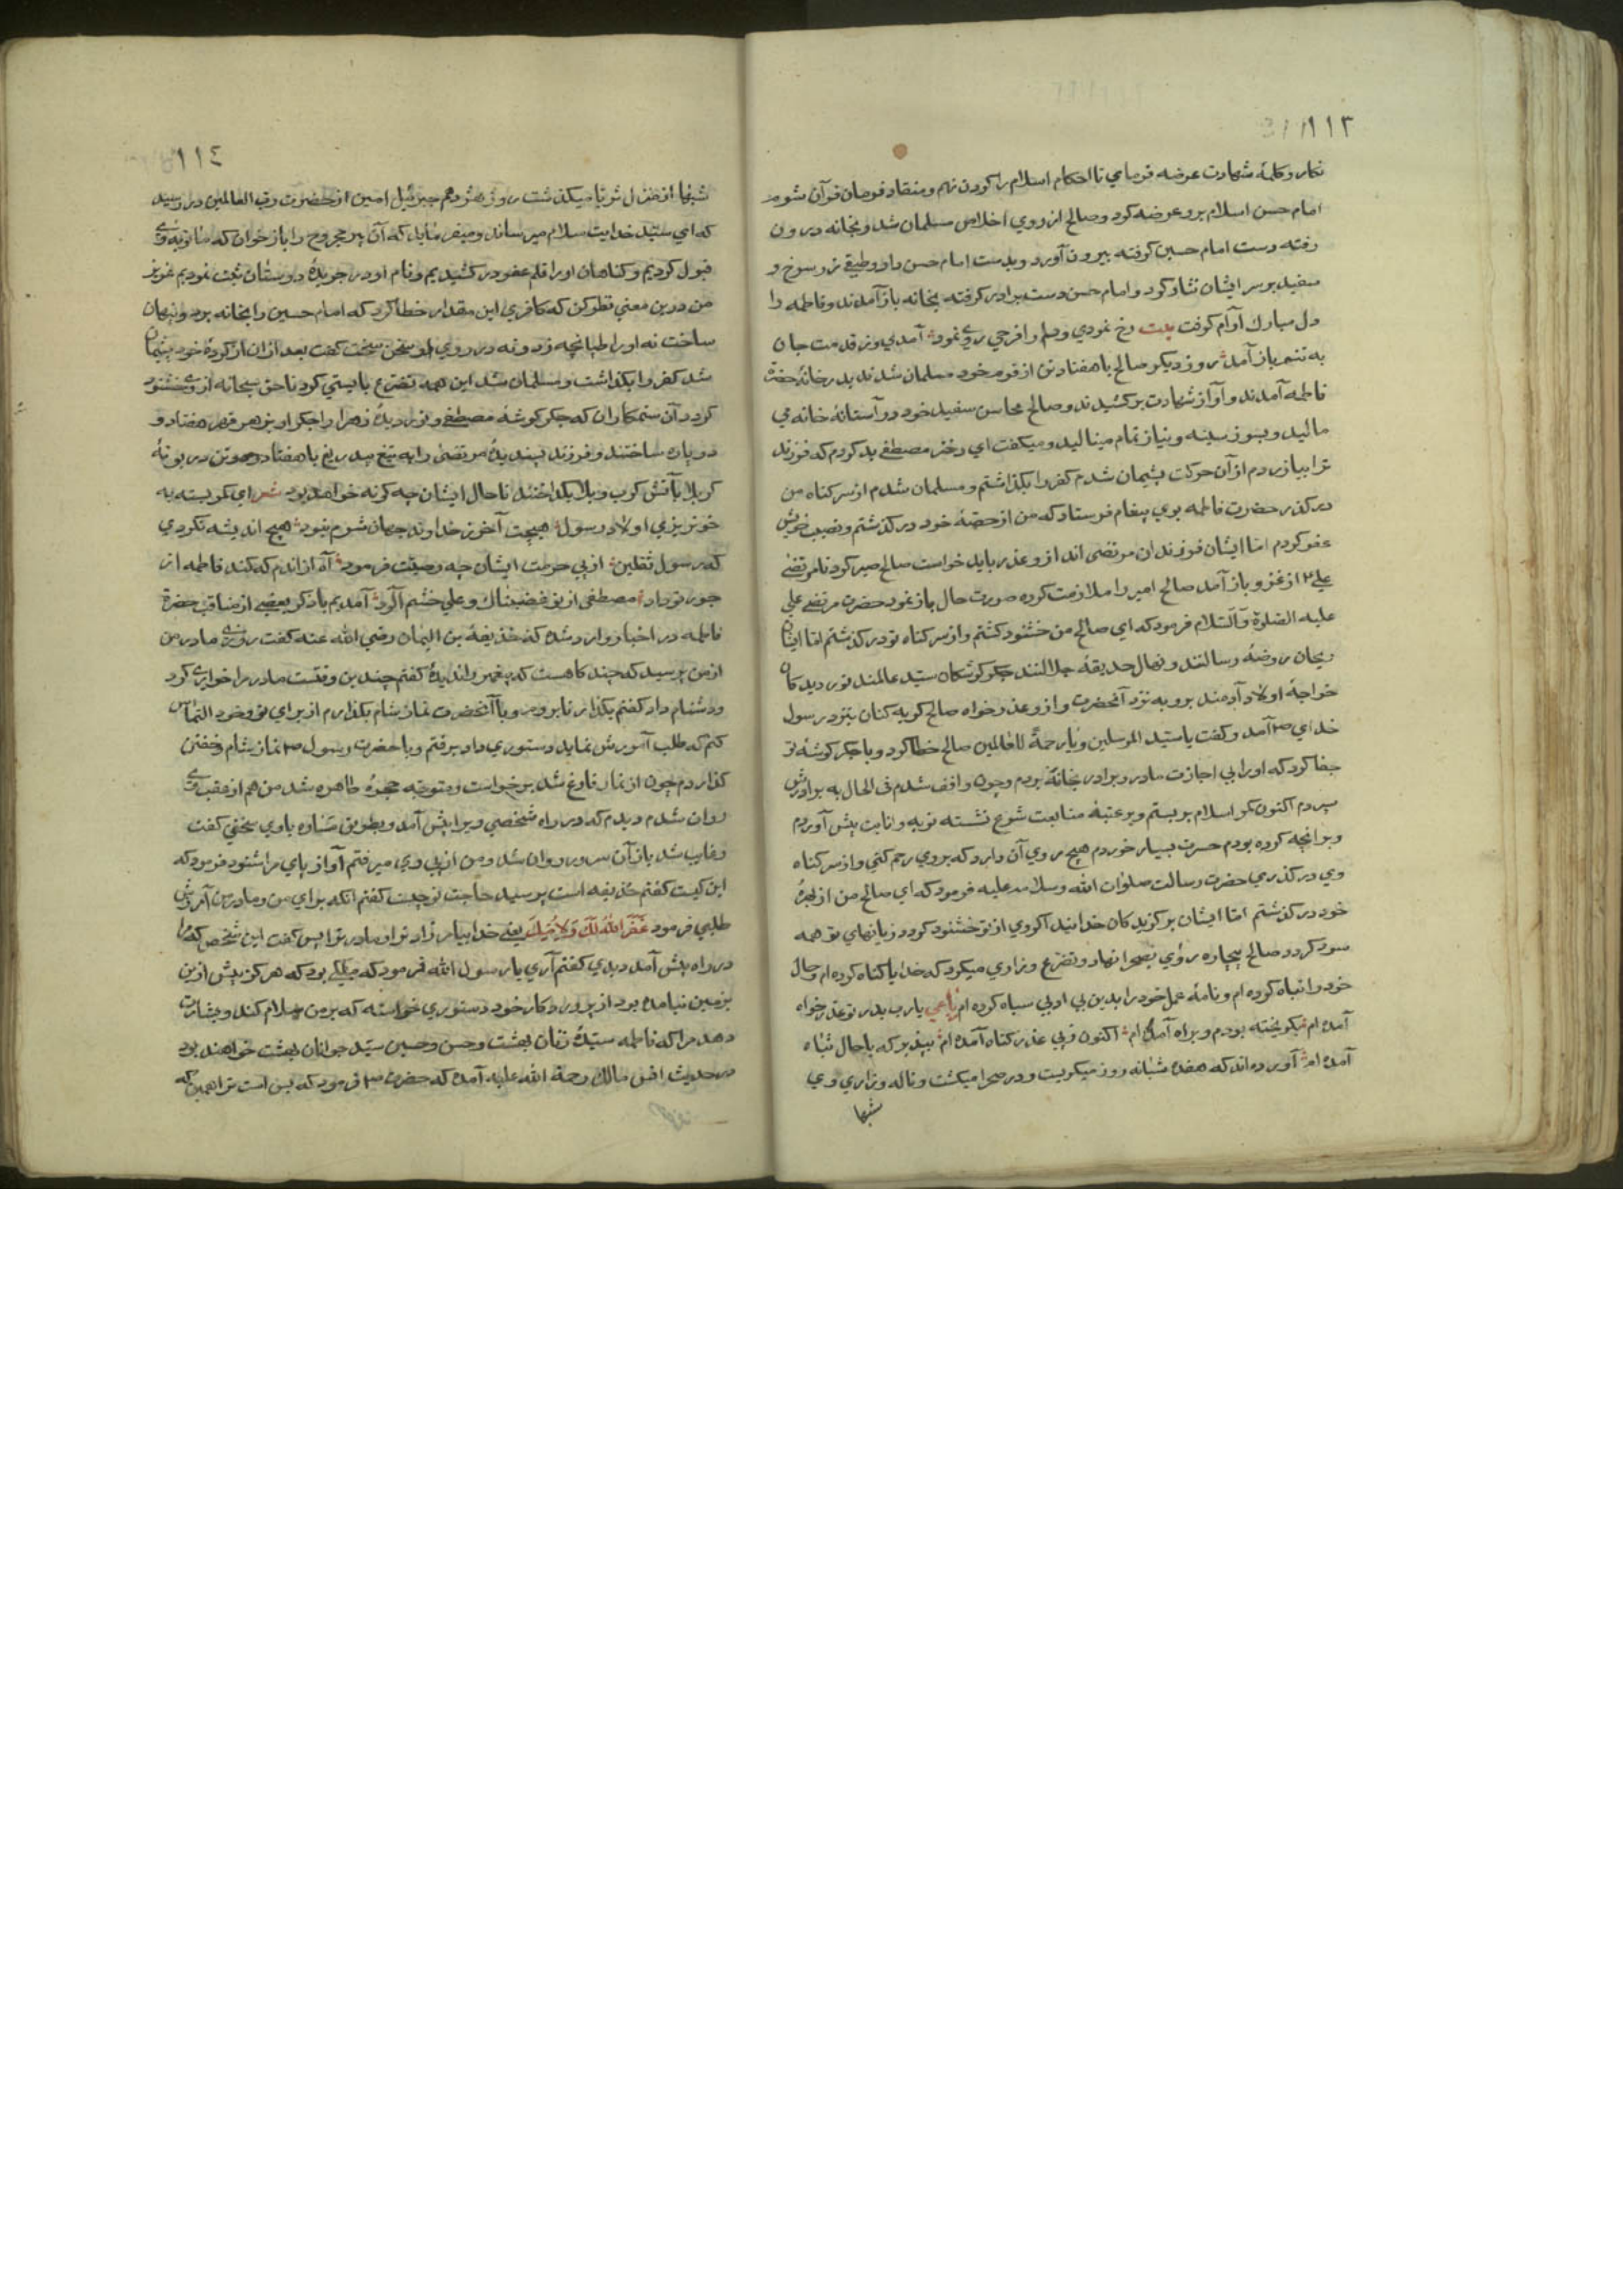 ١١٣
نكار و كلمهٔ شهادت عرضه فرماي تا احكام اسلام را كردن نهم و منقاد فرمان قرآن شوم
امام حسن اسلام برو عرضه كرد و صالح از روي اخلاص مسلمان شد و بخانه درون
رفته دست امام حسين كرفته بيرون آورد و بدست امام حسن داد و طبقي زر سرخ و
سفيد بر سر ايشان نثار كرد و امام حسن دست برادر كرفته بخانه باز آمدند و فاطمه را
دل مبارك آرام كرفت بيت رخ نمودي و دلم را فرحي روي نمود آمدي وز قدمت جان
به تنم باز آمد روز ديكر صالح با هفتاد تن از قوم خود مسلمان شدند بدر خانهٔ حضرت
فاطمه آمدند و آواز شهادت بر كشيدند و صالح محاسن سفيد خود در آستانهٔ خانه مي
ماليد و بسوز سينه و نياز تمام ميناليد و ميكفت اي دختر مصطفى بد كردم كه فرزند
ترا بيازردم از آن حركت پشيمان شدم كفر را بكذاشتم و مسلمان شدم از سر كناه من
در كذر حضرت فاطمه بوي پيغام فرستاد كه من از حصهٔ خود در كذشتم و نصيب خويش
عفو كردم اما ايشان فرزندان مرتضى اند ازو عذر بايد خواست صالح صبر كرد تا مرتضى
علي ؏ از غزو باز آمد صالح امير را ملازمت كرده صورت حال باز نمود حضرت مرتضى علي
عليه الصلوة و السلام فرمود كه اي صالح من خشنود كشتم و از سر كناه تو در كذشتم اما ايشان
ريحان روضهٔ رسالتند و نهال حديقهٔ جلالتند جكر كوشكان سيد عالمند نور ديدكان
خواجهٔ اولاد آدمند برو به نزد آنحضرت و ازو عذر خواه صالح كريه كنان بنزد رسول
خداي ص آمد و كفت يا سيد المرسلين و يا رحمة للعالمين صالح خطا كرد و با جكر كوشهٔ تو
جفا كرد كه او را بي اجازت مادر و برادر بخانه بردم و چون واقف شدم في الحال به برادرش
سپردم اكنون كمر اسلام بر بستم و بر عتبهٔ متابعت شرع نشسته توبه و انابت پيش آوردم
و بر انچه كرده بودم حسرت بسيار خوردم هيچ روي آن دارد كه بروي رحم كني و از سر كناه
وي در كذري حضرت رسالت صلوات الله و سلامه عليه فرمود كه اي صالح من از بهرهٔ
خود در كذشتم اما ايشان بر كزيدكان خدايند اكر وي از تو خشنود كردد زيانهاي تو همه
سود كردد صالح بيچاره روي بصحرا نهاد و تضرع و زاري ميكرد كه خدايا كناه كرده ام و حال
خود را تباه كرده ام و نامهٔ عمل خود را بدين بي ادبي سياه كرده ام رباعي يا رب بدر تو عذر خواه
آمده ام بكريخته بودم و براه آمده ام اكنون ز پي عذر كناه آمده ام بپذير كه با حال تباه
آمده ام آورده اند كه هفده شبانه روز ميكريست و در صحرا ميكشت و ناله و زاري وي
شبها
١١٤
شبها از منزل ثريا ميكذشت روز هژدهم جبرئيل امين از حضرت رب العالمين در رسيد
كه اي سيد خدايت سلام ميرساند و ميفرمايد كه آن پير مجروح را باز خوان كه ما توبهٔ وي
قبول كرديم و كناهان او را قلم عفو در كشيديم و نام او در جريدهٔ دوستان ثبت نموديم عزيز
من درين معني نظر كن كه كافري اين مقدار خطا كرد كه امام حسين را بخانه برد و پنهان
ساخت نه او را طپانچه زد و نه در روي او سخن سخت كفت بعد از ان از كردهٔ خود پشيمان
شد كفر را بكذاشت و مسلمان شد اين همه تضرع بايستي كرد تا حق سبحانه از وي خشنود
كردد آن ستمكاران كه جكر كوشهٔ مصطفى و نور ديدهٔ زهرا را جكر او بزهر قهر هفتاد و
دو پاره ساختند و فرزند پسنديدهٔ مرتضى را به تيغ بيدريغ با هفتاد و دو تن در بوتهٔ
كربلا بآتش كرب و بلا بكداختند تا حال ايشان چه كونه خواهد بود شعر اي كمر بسته به
خونريزي اولاد رسول هيچت آخر ز خداوند جهان شرم نبود هيچ انديشه نكردي
كه رسول ثقلين از پي حرمت ايشان چه وصيت فرمود آه از اندم كه كند فاطمه از
جور تو داد مصطفى از تو غضبناك و علي خشم آلود آمديم باذكر بعضي از مناقب حضرة
فاطمه در اخبار وارد شده كه حذيفة بن اليمان رضي الله عنه كفت روزي مادر من
از من پرسيد كه چند كاهست كه پيغمبر را نديدهٔ كفتم چندين وقتست مادر مرا خواري كرد
و دشنام داد كفتم بكذار تا بروم و با آنحضرت نماز شام بكذارم از براي تو و خود التماس
كنم كه طلب آمرزش نمايد دستوري داد برفتم و با حضرت رسول ص نماز شام و خفتن
كذاردم چون از نماز فارغ شد برخواست و متوجه حجرهٔ طاهره شد من هم از عقب وي
روان شدم ديدم كه در راه شخصي ويرا پيش آمد و بطريق مساره با وي سخني كفت
و غايب شد باز آن سرور روان شد و من از پي وي ميرفتم آواز پاي مرا شنود فرمود كه
اين كيست كفتم حذيفه است پرسيد حاجت تو چيست كفتم انكه براي من و مادر من آمرزش
طلبي فرمود غَفَرَ اللهُ لَكَ وَلِأُمِّكَ يعني خدا بيامرزاد ترا و مادر ترا پس كفت اين شخص كه مرا
در راه پيش آمد ديدي كفتم آري يا رسول الله فرمود كه ملكي بود كه هركز پيش ازين
بزمين نيامده بود از پروردكار خود دستوري خواسته كه بر من سلام كند و بشارت
دهد مرا كه فاطمه سيدهٔ زنان بهشت و حسن و حسين سيد جوانان بهشت خواهند بود
در حديث انس مالك رحمة الله عليه آمده كه حضرت ص فرمود كه بس است ترا همين كه